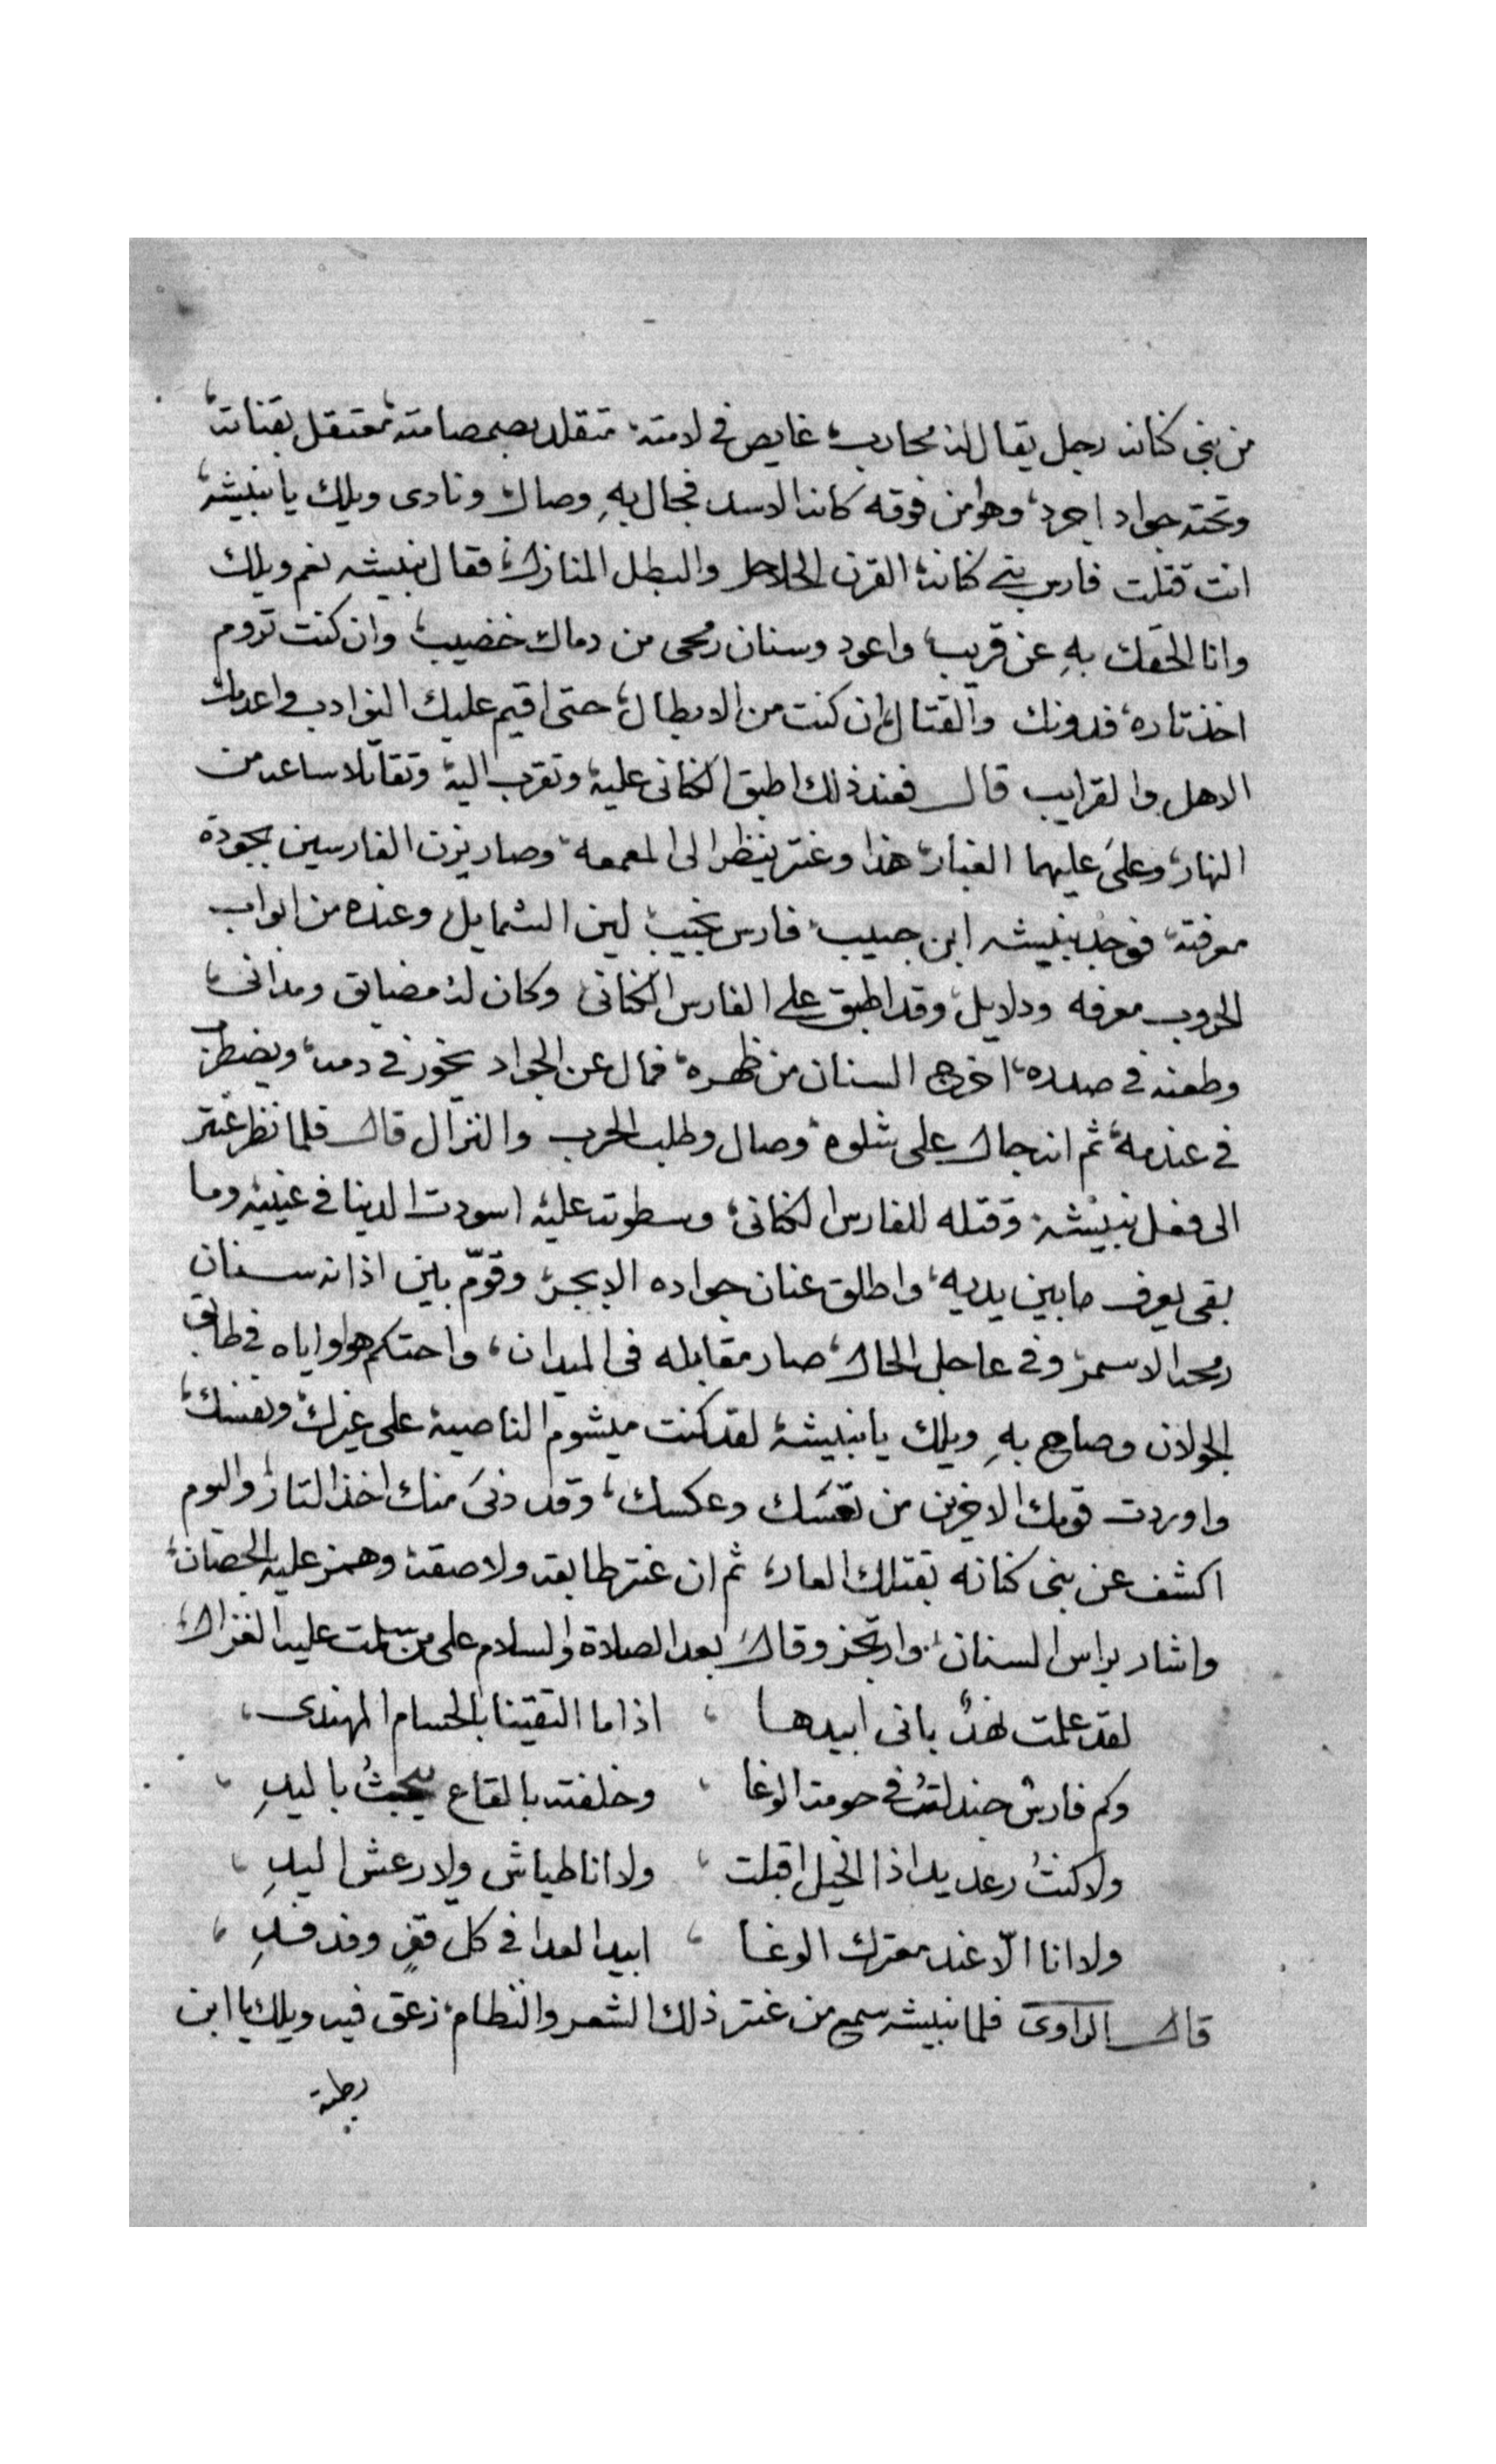 من بنى كنانه رجل يقال له محارب، غايص في لامته، متقلد بصمصامته، معتقل بقناته،
وتحته جواد اجرد، وهو من فوقه كانه الاسد فجال بهِ وصال ونادى ويلك يا نبيشة،
انت قتلت فارس بني كنانة، القرن الحلاحل والبطل المنازل، فقال نبيشه نعم ويلك
وانا الحقك بهِ عن قريب، واعود وسنان رمحى من دماك خضيب، وان كنت تروم
اخذ تاره، فدونك والقتال، ان كنت من الابطال، حتى اقيم عليك النوادب واعدمك
الاهل والقرايب قال فعند ذلك اطبق الكنانى علية، وتقرب الية، وتقاتلا ساعد من
النهار، وعلى عليهما الغبار، هذا وعنتر ينظر الى المعمعه، وصار يزن الفارسين بجودة
معرفته، فوجد نبيشه ابن حبيب، فارس نجيب، لين الشمايل، وعنده من ابواب
الحروب معرفه ودلايل، وقد اطبق على الفارس الكنانى وكان له مضايق ومدانى،
وطعنه في صدره، اخرج السنان من ظهره، فمال عن الجواد يخور في دمه، ويضطرب
في عندمه، ثم انه جال على شلوه، وصال وطلب الحرب والنزال قال فلما نظر عنتر
الى فعل نبيشة، وقتله للفارس الكنانى، وسطوته عليه اسودت الدينا في عينيه وما
بقى يعرف ما بين يديه، واطلق عنان جواده الابجر، وقوّم بين اذانه سنان
رمحه الاسمر، وفي عاجل الحال، صار مقابله فى الميدان، واحتكم هو واياه في طابق
الجولان وصاح بهِ ويلك يا نبيشة، لقد كنت ميشوم الناصية على غيرك، ونفسك،
واوردت قومك الاخرين من تعسك وعكسك، وقد دنى منك اخذ التار، واليوم
اكشف عن بنى كنانه بقتلك العار، ثم ان عنتر طابقه ولاصقة، وهمز عليه الحصان،
واشار براس السنان، وارتجز وقال بعد الصلاة والسلام على من سلمت عليه الغزال،
لقد علمت نهدٌ بانى ابيدها ، اذا ما التقينا بالحسام المهندى،
وكم فارسٌ جندلتهُ في حومة الوغا ، وخلفته بالقاع يبحثُ باليدِ ،
ولا كنتُ رعديد اذا الخيل اقبلت ، ولا انا طياش ولا رعش اليدِ ،
ولا انا الّا عند معترك الوغا ، ابيد العدا في كل قفرٍ وفدفدِ ،
قال الراوى فلما نبيشه سمع من عنتر ذلك الشعر والنظام، زعق فيه ويلك يا ابن
زبيبة